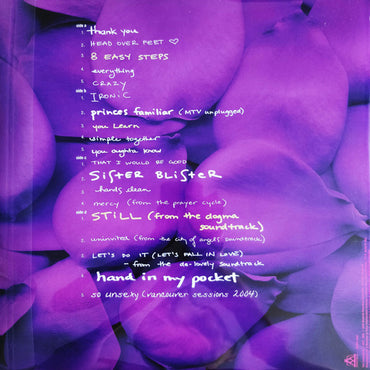 side a
1. thank you
2. HEAD OVER FEET ♡
3. 8 EASY STEPS
4. everything
5. CRAZY
side b
1. IRONIC
2. princes familiar (MTV unplugged)
3. you learn
4. simple together
5. you oughta know
side c
1. THAT I WOULD BE GOOD
2. SiSTER BLiSTER
3. hands clean
4. mercy (from the prayer cycle)
side d
1. STiLL (from the dogma
soundtrack)
2. uninvited (from the city of angels soundtrack)
3. LET'S DO IT (LET'S FALL IN LOVE)
- from the de-lovely soundtrack
4. hand in my pocket
5. so unsexy (vancouver sessions 2004)